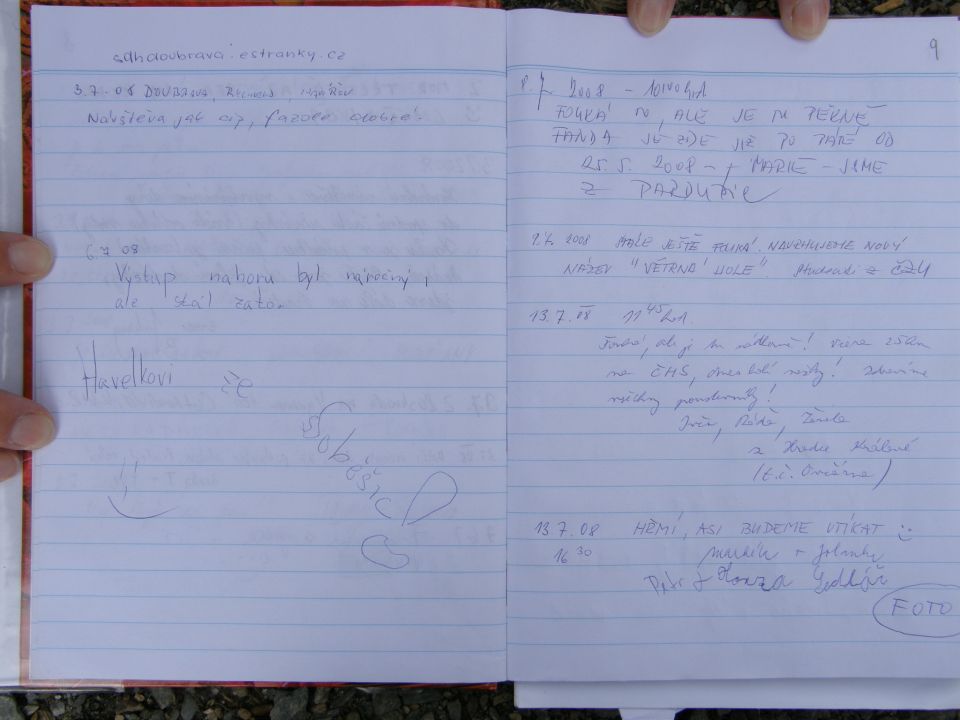 sdhdoubrava.estranky.cz
3.7.08 DOUBRAVA,
Navštěva jak cip, fazole dobré.
6.7 08
Výstup nahoru byl náročný,
ale stál zato.
Havelkovi
ze
Soběšic
9
8.7 2008 - 10:10 hod
FOUKÁ TU, ALE JE TU PĚKNĚ
FANDA JE ZDE JIŽ PO TÁTÉ OD
25.5. 2008 - + MARIE - JSME
Z PARDUBIC
9.7. 2008 STÁLE JEŠTĚ FOUKÁ. NAVRHUJEME NOVÝ
NÁZEV "VĚTRNÁ HOLE" studenti z ČZU
13.7.08 11 45 hod.
Fouká, ale je tu nádherně! Včera 25km
na ČHS, dnes bolí nohy! Zdravíme
všechny
z Hradce Králové
(t.č. Ovčárna)
13.7.08 HŘMÍ, ASI BUDEME UTÍKAT :-)
16 30
Petr + Honza Sedlář
FOTO